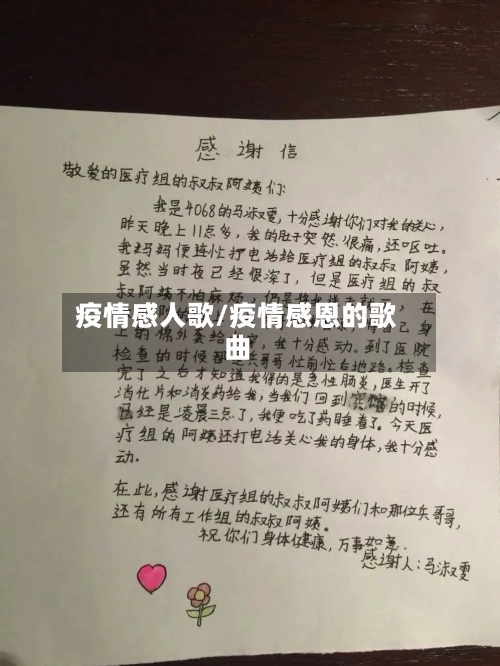 感谢信
敬爱的医疗组的叔叔阿姨们:
我是4068的马淑雯,十分感谢你们对我的关心,
昨天晚上11点多,我的肚子突然很痛,还呕吐。
我妈妈便连忙打电话给医疗组的叔叔阿姨,
虽然当时夜已经很深了,但是医疗组的叔
叔阿姨不怕麻烦,仍是将我送去就
在
疫情感人歌/疫情感恩的歌
曲
自己身
上的棉外套给
我十分感动。到了医院
检查的时候
兵哥哥忙前忙右地跑。检查
完了之右才知道我得的是急性肠炎,医生开了
消化片和消炎药给我,当我们回到 的时候,
已经是凌晨三点了,我便吃了药睡着了。今天医
疗组的阿姨还打电话关心我的身体,我十分感
动。
在此,感谢医疗组的叔叔阿姨们和那位兵哥哥,
还有所有工作组的叔叔阿姨。
祝你们身体健康,万事如意.
感谢人:马淑雯